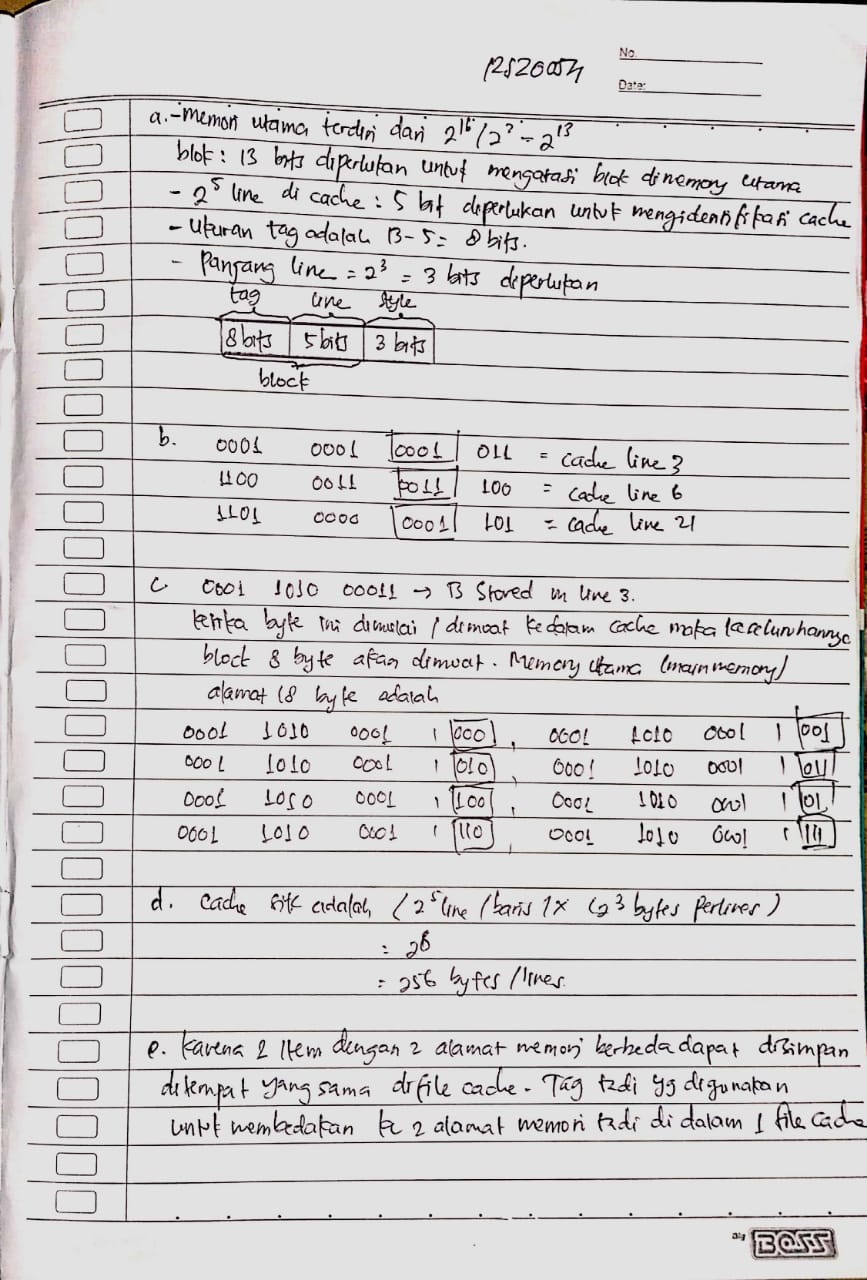 12S20054
No.
Date:
a. - Memori utama terdiri dari 2^16 / 2^3 = 2^13
blok : 13 bits diperlukan untuk mengatasi blok dimemory utama
- 2^5 line di cache : 5 bit diperlukan untuk mengidentifikasi cache
- Ukuran tag adalah 13 - 5 = 8 bits.
- Panjang line = 2^3 = 3 bits diperlukan
tag line style
8 bits 5 bits 3 bits
block
b. 0001 0001 0001 1 011 = cache line 3
1100 0011 0011 0 100 = cache line 6
1101 0000 0001 1 101 = cache line 21
c 0001 1010 00011 → B Stored in line 3.
ketika byte ini dimulai / dimuat kedalam cache maka keseluruhannya
block 8 byte akan dimuat. Memory utama (main memory)
alamat (8 byte adalah
0001 1010 0001 1 000 , 0001 1010 0001 1 001
0001 1010 0001 1 010 , 0001 1010 0001 1 011
0001 1010 0001 1 100 , 0001 1010 0001 1 101
0001 1010 0001 1 110 , 0001 1010 0001 1 111
d. Cache size adalah (2^5 line / baris ) x (2^3 bytes perlines)
= 2^8
= 256 bytes / lines.
e. Karena 2 Item dengan 2 alamat memori berbeda dapat disimpan
ditempat yang sama di file cache. Tag tadi yg digunakan
untuk membedakan ke 2 alamat memori tadi di dalam 1 file cache
By BOSS